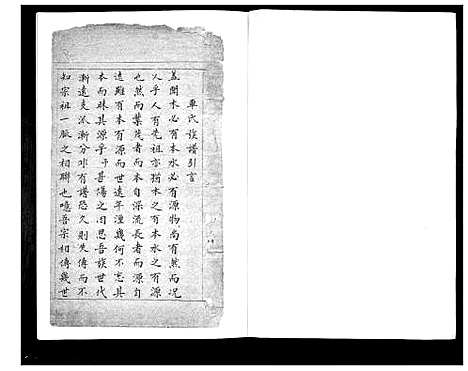 車氏族譜引言
蓋聞木必有本水必有源物尚有然而况
人乎人有先祖亦猶木之有本水之有源
也然而葉茂者而本自深流長者而源自
遠雖有本有源而世遠年湮幾何不忘其
本而昧其源乎于甚傷之因思吾族世代
漸遠支派漸分非有譜恐久則失傳而不
知宗祖一脈之相聯也噫吾宗相傳幾世